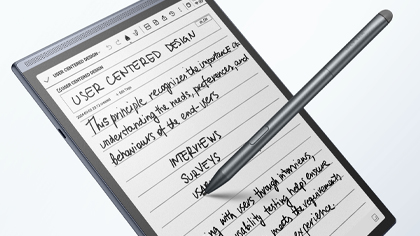 USER CENTERED DESIGN
USER CENTERED DESIGN
USER CENTERED DESIGN
This principle recognizes the importance of
understanding the needs, preferences, and
behaviours of the end-users
INTERVIEWS
SURVEYS
usa
ing with users through interviews,
usability testing helps ensure
meets the requirements
experience.